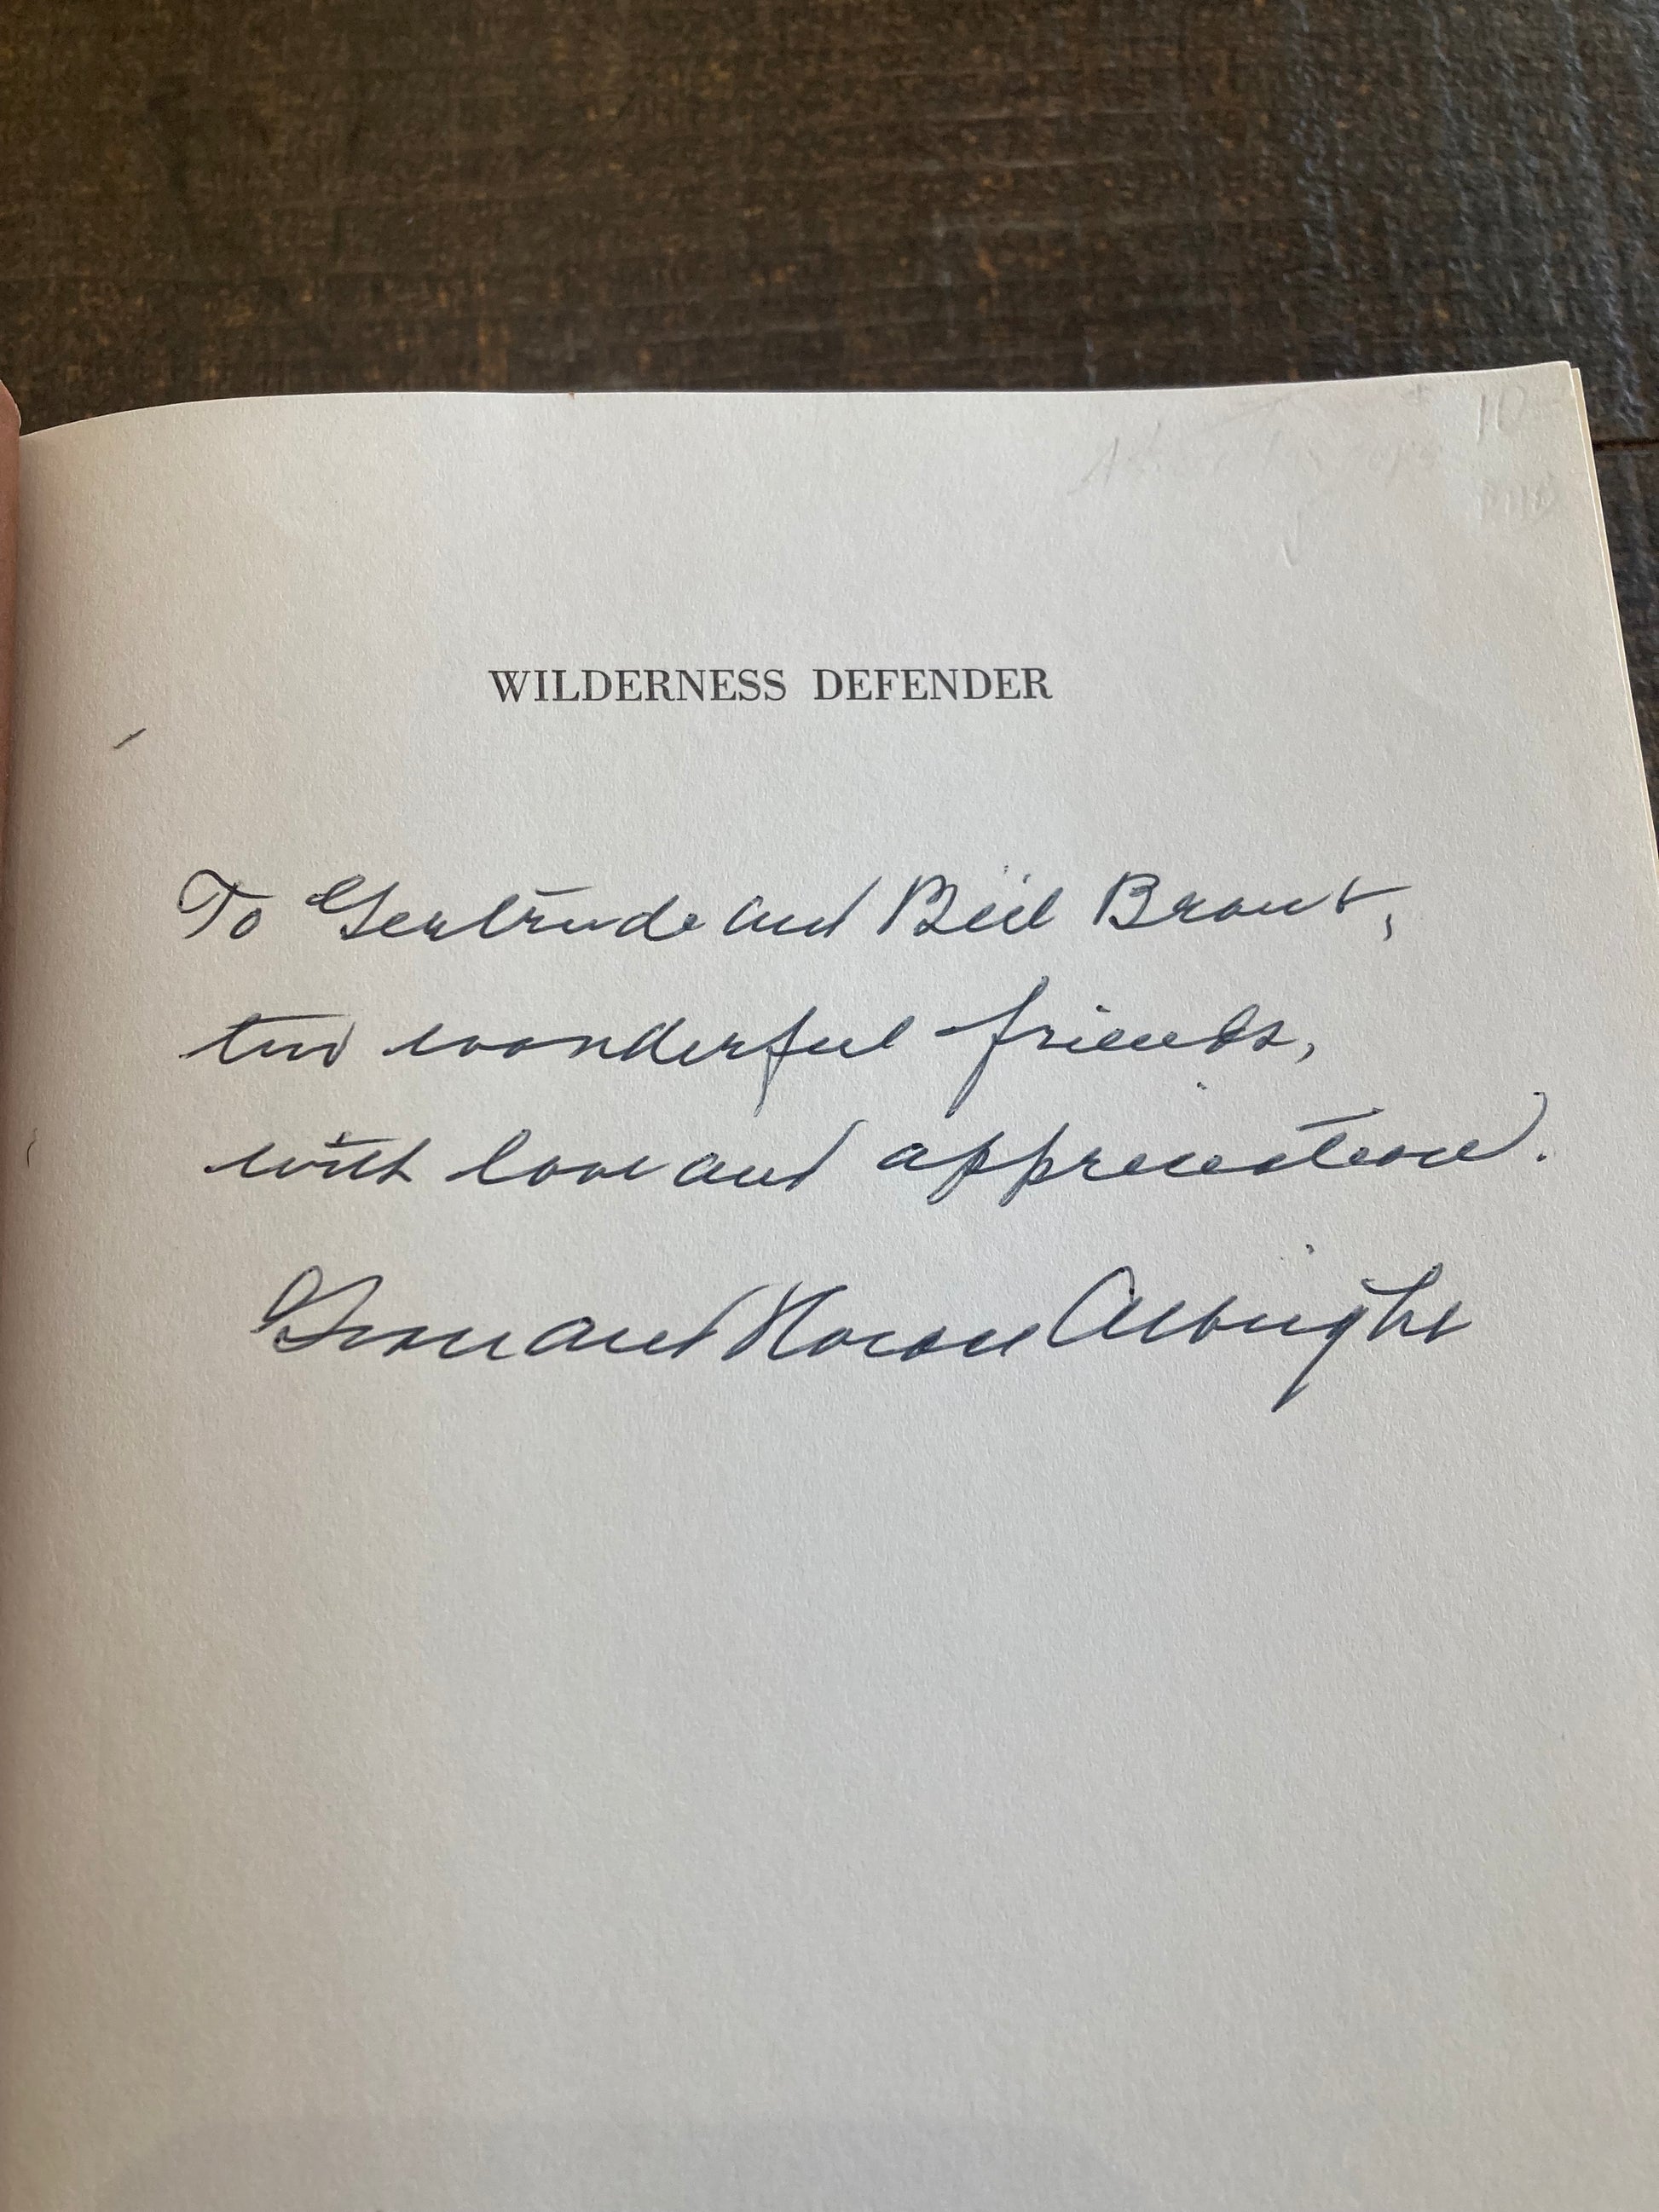 10
WILDERNESS DEFENDER
To Gertrude and Bill Brant,
two wonderful friends,
with love and appreciation.
and Horace Albright